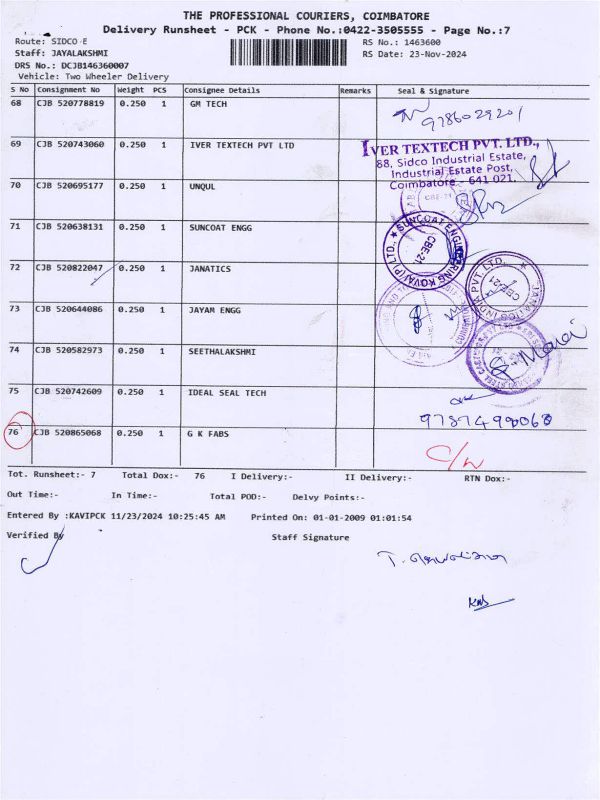 THE PROFESSIONAL COURIERS, COIMBATORE
Delivery Runsheet - PCK - Phone No.:0422-3505555 - Page No.:7
Route: SIDCO E
RS No.: 1463600
Staff: JAYALAKSHMI
RS Date: 23-Nov-2024
DRS No.: DCJB146360007
Vehicle: Two Wheeler Delivery
S No Consignment No Weight PCS Consignee Details Remarks Seal & Signature
68 CJB 520778819 0.250 1 GM TECH
9786029201
69 CJB 520743060 0.250 1 IVER TEXTECH PVT LTD
IVER TEXTECH PVT. LTD.,
88, Sidco Industrial Estate,
Industrial Estate Post,
Coimbatore - 641 021.
70 CJB 520695177 0.250 1 UNQUL
CBE-21
71 CJB 520638131 0.250 1 SUNCOAT ENGG
SUNCOAT ENGINEERING KOVAI (P) LTD.,
CBE-21
72 CJB 520822047 0.250 1 JANATICS
JANATICS INDIA PVT. LTD.
CBE-21
73 CJB 520644086 0.250 1 JAYAM ENGG
74 CJB 520582973 0.250 1 SEETHALAKSHMI
75 CJB 520742609 0.250 1 IDEAL SEAL TECH
9787490063
76 CJB 520865068 0.250 1 G K FABS
C/N
Tot. Runsheet:- 7 Total Dox:- 76 I Delivery:- II Delivery:- RTN Dox:-
Out Time:- In Time:- Total POD:- Delvy Points:-
Entered By :KAVIPCK 11/23/2024 10:25:45 AM Printed On: 01-01-2009 01:01:54
Verified By
Staff Signature